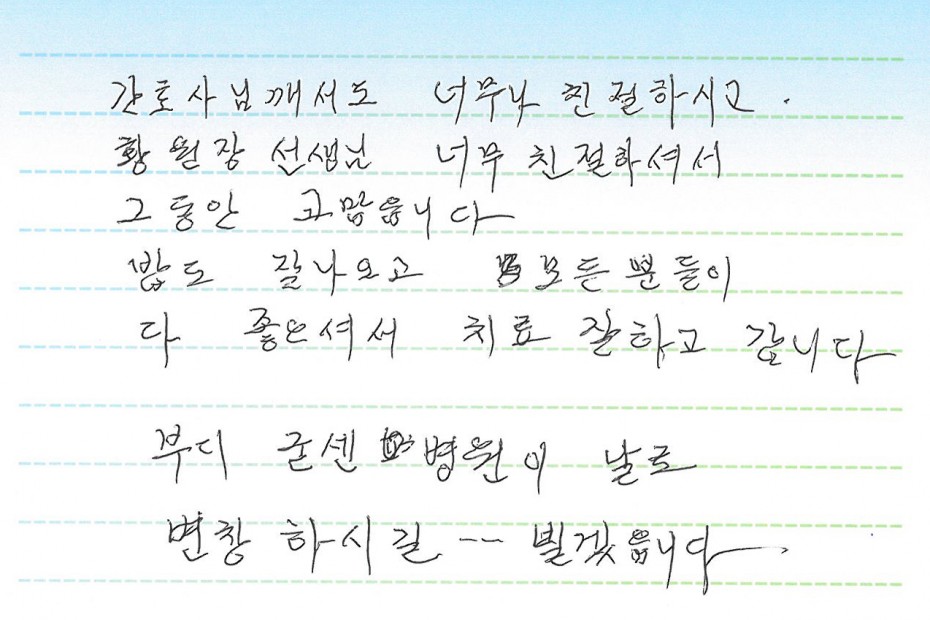 간호사님께서도 너무나 친절하시고.
황원장 선생님 너무 친절하셔서
그동안 고맙읍니다
밥도 잘나오고 모든분들이
다 좋은셔서 치료 잘하고 갑니다
부디 굳센 병원이 날로
변창 하시길 --- 빌겠읍니다.